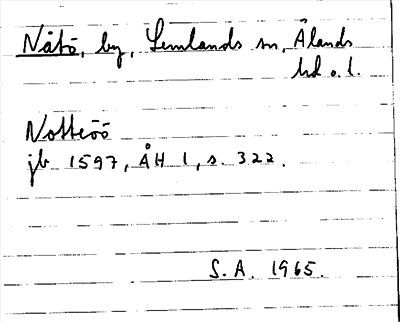 Nåtö, by, Lemlands sn, Ålands
hd o. l.
Nottöö
jb 1597, ÅH 1, s. 322.
S. A. 1965.